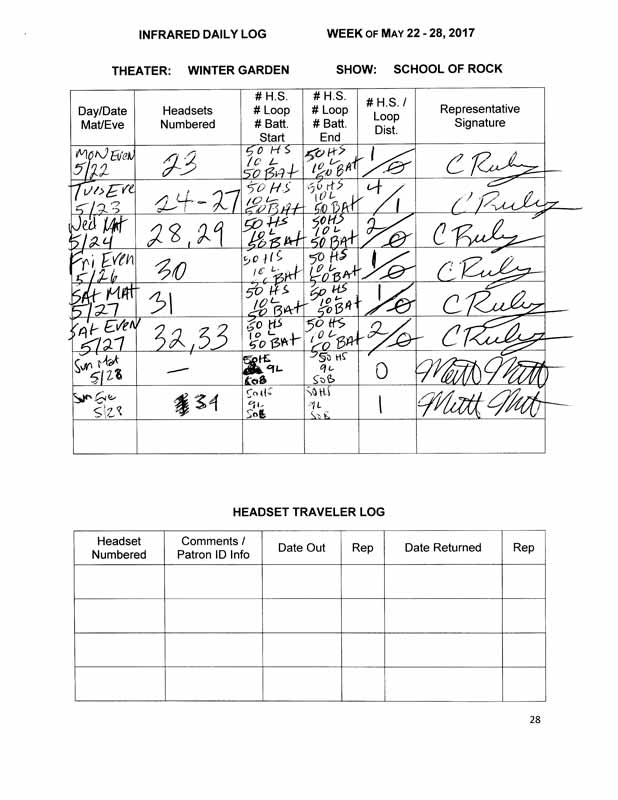 INFRARED DAILY LOG WEEK OF MAY 22 - 28, 2017
THEATER: WINTER GARDEN SHOW: SCHOOL OF ROCK
Day/Date Mat/Eve Headsets Numbered # H.S. # Loop # Batt. Start # H.S. # Loop # Batt. End # H.S. / Loop Dist. Representative Signature
MON EVEN 5/22 23 50 HS 10 L 50 BAT 50 HS 10 L 50 BAT 1/0 C Ruby
TUES EVE 5/23 24-27 50 HS 10L 50 BAT 50 HS 10L 50 BAT 4/1 C Ruby
Wed MAT 5/24 28, 29 50 HS 10L 50 BAT 50HS 10L 50 BAT 2/0 C Ruby
Fri EVEN 5/26 30 50 HS 10 L 50 BAT 50 HS 10L 50 BAT 1/0 C Ruby
SAT MAT 5/27 31 50 HS 10L 50 BAT 50 HS 10L 50 BAT 1/0 C Ruby
SAT EVEN 5/27 32,33 50 HS 10 L 50 BAT 50 HS 10 L 50 BAT 2/0 C Ruby
Sun Mat 5/28 — 50HS 9L 50B 50 HS 9L 50B 0
Sun Eve 5/28 34 50HS 9L 50B 50HS 9L 50B 1
HEADSET TRAVELER LOG
Headset Numbered Comments / Patron ID Info Date Out Rep Date Returned Rep
28